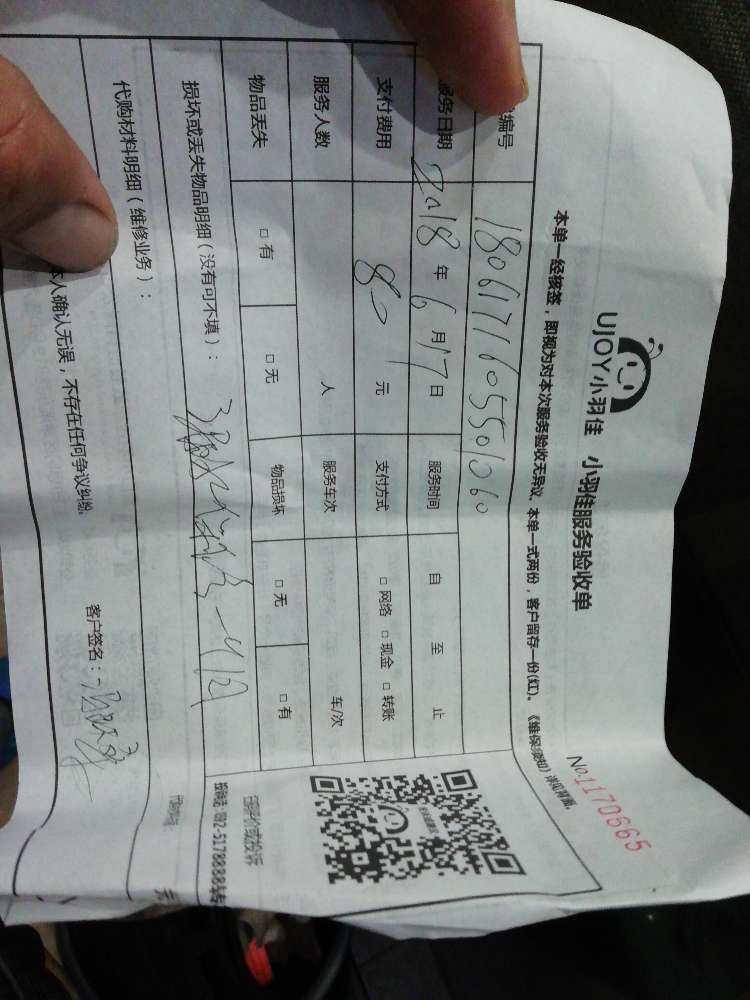 UJOY小羽佳 小羽佳服务验收单
No.1170665
本单一经核签，即视为对本次服务验收无异议、本单一式两份，客户留存一份(红)。《维保须知》详见背面。
编号 1806171605501060
服务日期 2018年6月17日 服务时间 自 至 止
支付费用 80元 支付方式 □网络 □现金 □转账
服务人数 人 服务车次 车/次
物品丢失 □有 □无 物品损坏 □无 □有
损坏或丢失物品明细（没有可不填）：
代购材料明细（维修业务）：
本人确认无误，不存在任何争议纠纷。
客户签名：